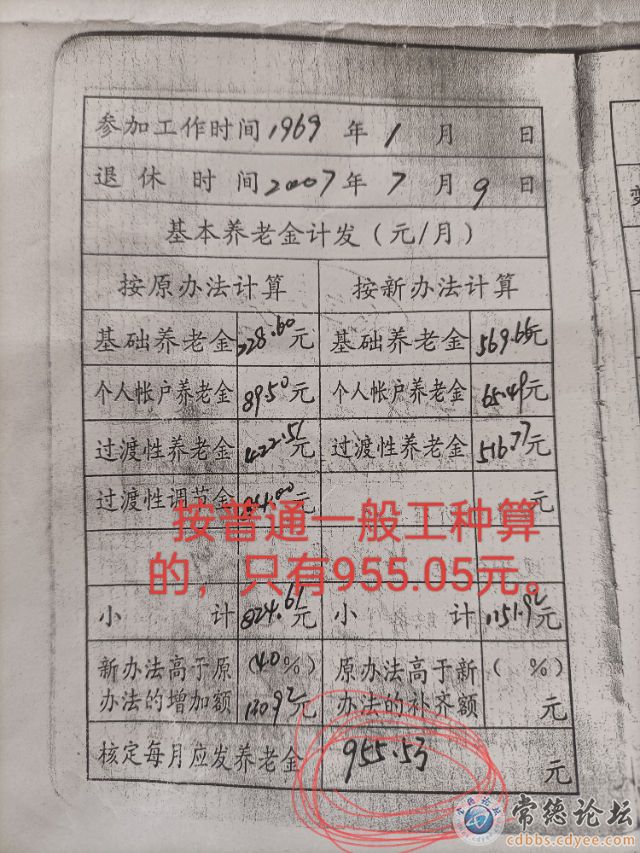 参加工作时间1969年1月 日
退休时间2007年7月9日
基本养老金计发（元/月）
按原办法计算 按新办法计算
基础养老金 228.60元 基础养老金 569.66元
个人帐户养老金 89.50元 个人帐户养老金 65.49元
过渡性养老金 422.51元 过渡性养老金 516.77元
过渡性调节金 84.00元 元
按普通一般工种算
的，只有955.05元。
小计 824.61元 小计 1151.92元
新办法高于原 (40%) 原办法高于新 ( %)
办法的增加额 130.92元 办法的补齐额 元
核定每月应发养老金 955.53 元
常德论坛
cdbbs.cdyee.com